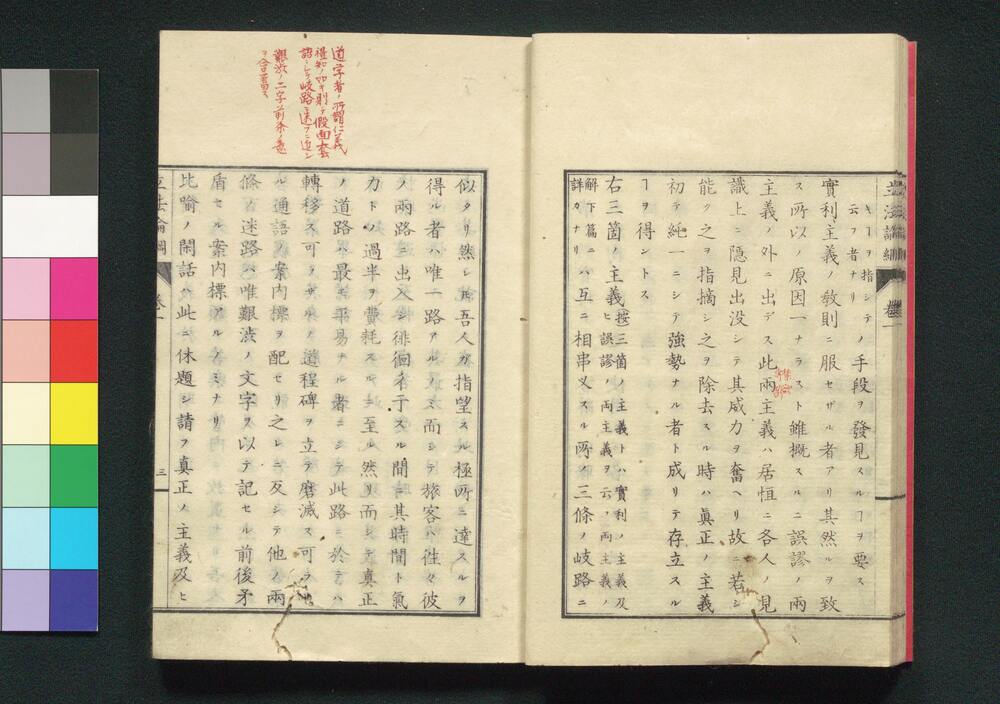 キーヲ指シテ
云フ者ナリ
ノ手段ヲ發見スルヿヲ要ス
實利主義ノ敎則ニ服セザル者アリ其然ルヲ致
ス所以ノ原因一ナラズト雖概スルニ誤謬ノ兩
主義ノ外ニ出デス此兩主義ハ居恒ニ各人ノ見
識上ニ隱見出沒シテ其威力ヲ奮ヘリ故ニ若シ
能ク之ヲ指摘シ之ヲ除去スル時ハ眞正ノ主義
初テ純一ニシテ強勢ナル者ト成リテ存立スル
ヿヲ得ントス
右三箇ノ主義
按三箇ノ主義トハ實利ノ主義及
ヒ誤謬ノ兩主義ヲ云フ兩主義ノ
解下篇ニ
詳カナリ
ハ互ニ相串乂スル所ノ三條ノ岐路ニ
立法論綱 卷一
道学者ノ所謂仁義
禮知ノ如キ則チ假面套
語ニシテ岐路ニ迷フニ近シ
艱渋ノ二字前条ノ意
ヲ含蓄ス
似タリ然レ𪜈吾人ガ指望スル極所ニ達スルヲ
得ル者ハ唯一路アルノミ而シテ旅客ハ徃々彼
ノ兩路ニ出入シ徘徊衣于スル間ニ其時間ト氣
力トノ過半ヲ費耗スルニ至ル然リ而シテ真正
ノ道路ハ最モ平易ナル者ニシテ此路ニ於テハ
轉移ス可ラザルノ道程碑ヲ立テ磨滅ス可ラザ
ル通語ノ案内標ヲ配セリ之レニ反シテ他ノ兩
條ノ迷路ハ唯艱渋ノ文字ヲ以テ記セル前後矛
盾セル案内標アルノミナリ
比喩ノ閑話ハ此ニ休題シ請フ真正ノ主義及ヒ
立法論綱 卷一 三